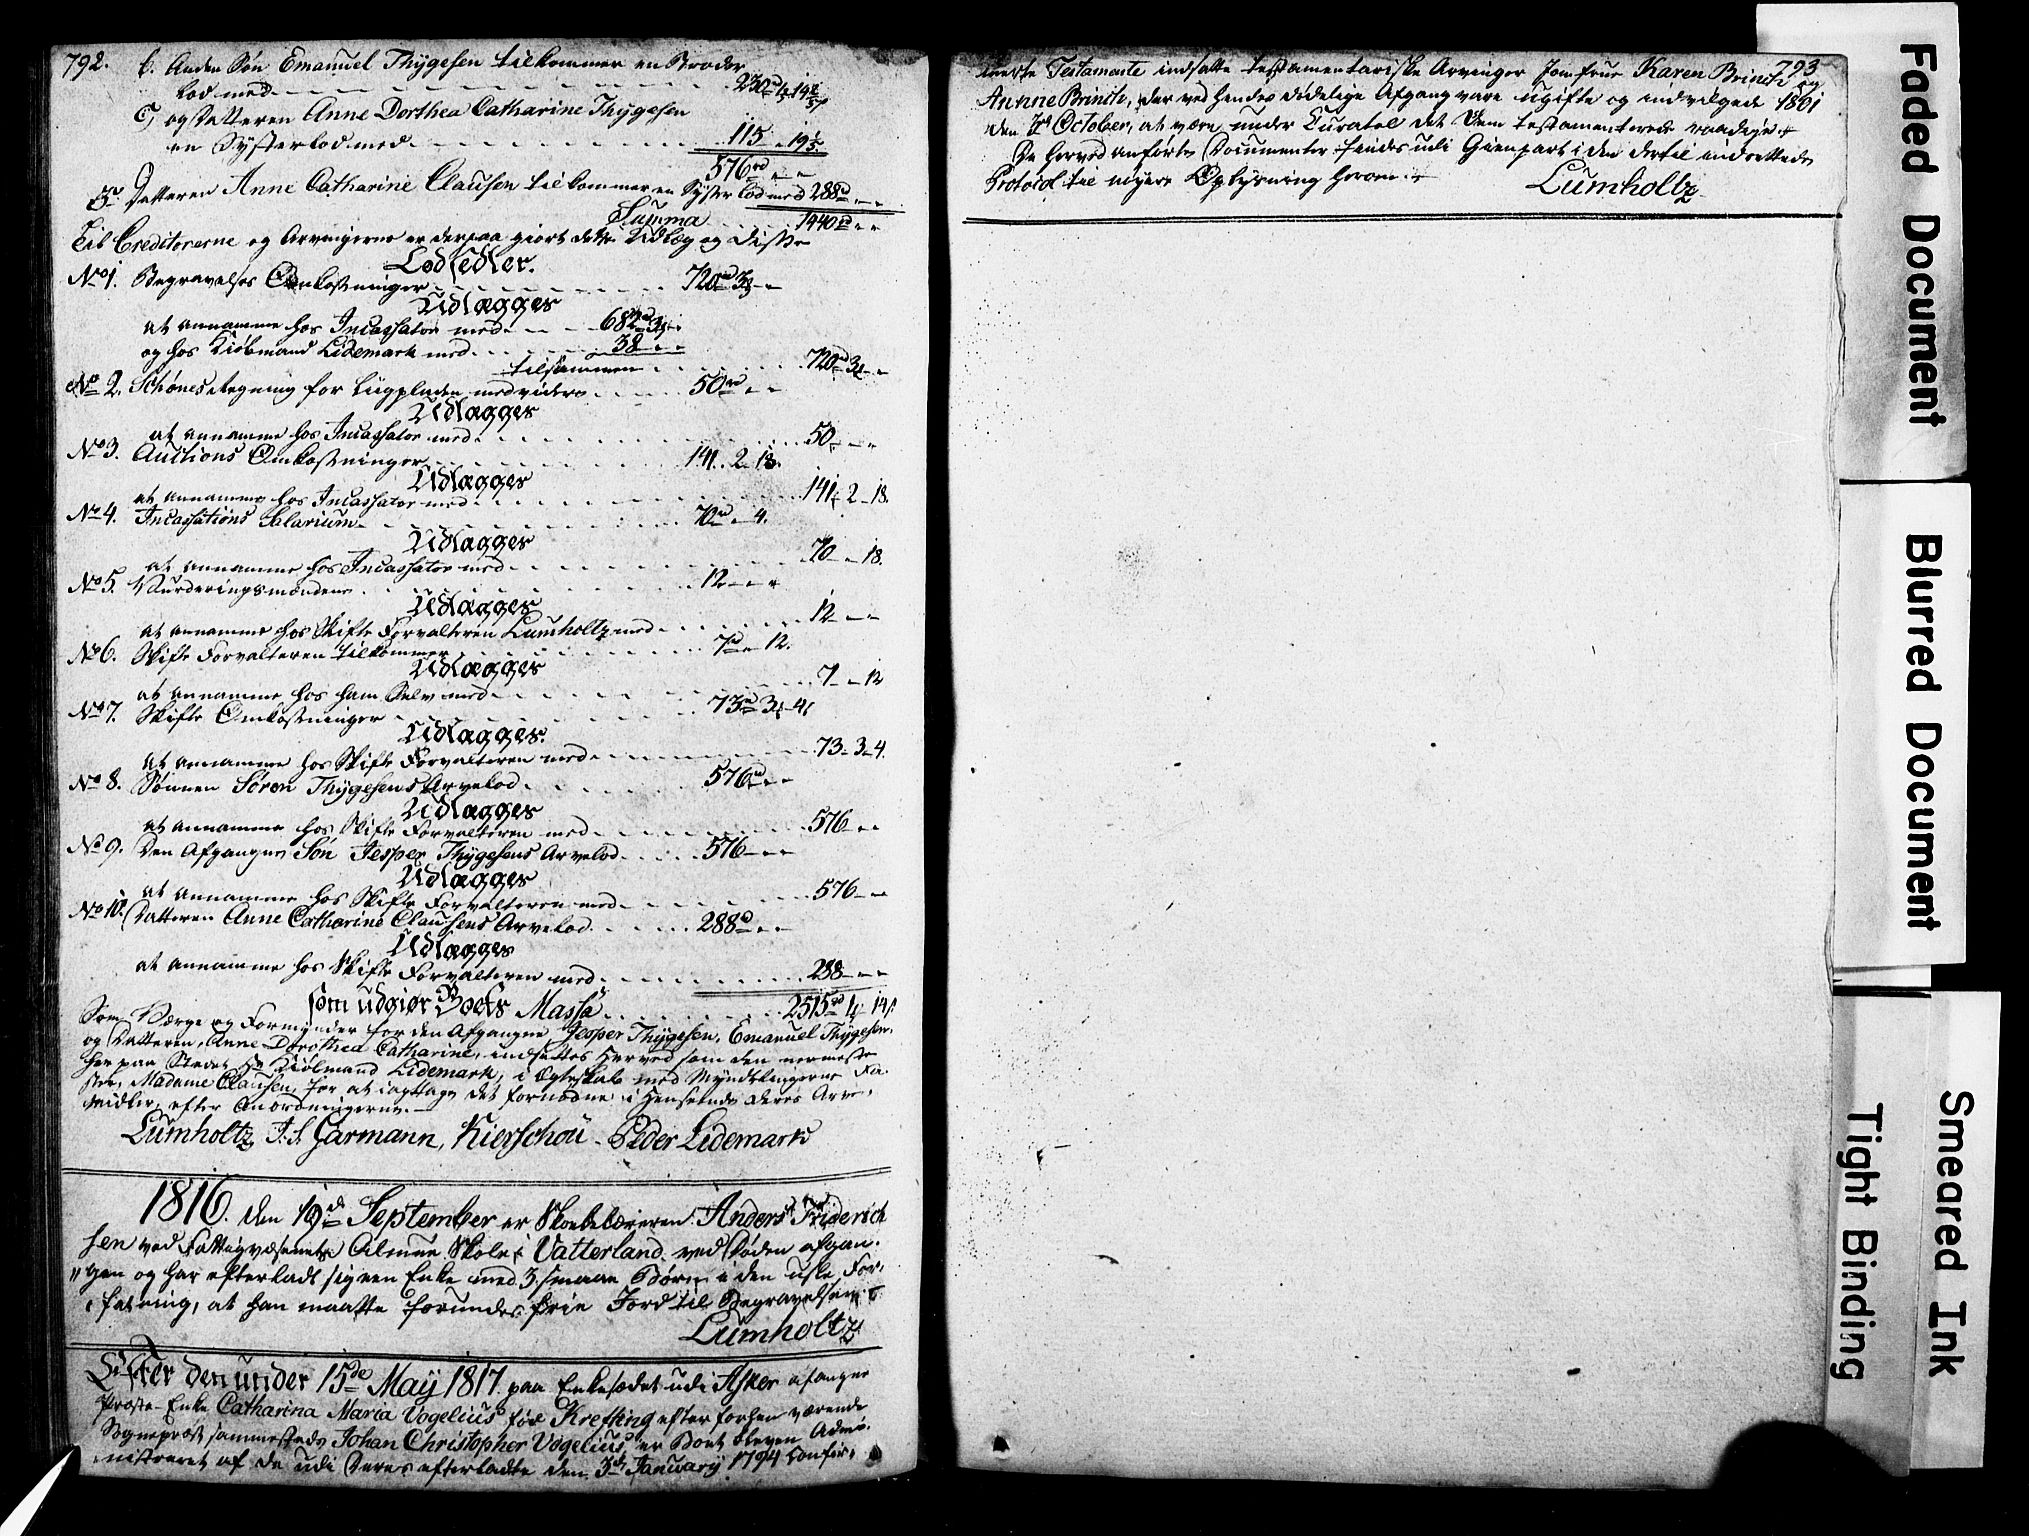 792.
b. Anden Søn Emanuel Thygesen tilkommer en Broder
lod med 230 rd 4 14 2/5 s
c, og Datteren Anne Dorthea Catharine Thygesen
en Systerlod med 115 - 19 1/5
576 rd - -
3. Datteren Anne Catharine Clausen tilkommer en Syster lod med 288 rd - -
Summa 1440 rd - -
Til Creditorerne og Arvingerne er derpaa giort dette Udlæg og disse
Lodsedler.
No 1. Begravelses Omkostninger 720 rd 3 -
Udlægges
at annamme hos Incassator med 682 rd 3 -
og hos Kiøbmand Lidemark med 38 - -
tilsammen 720 rd 3 -
No 2. Schønes Regning for Liigpladen med videre 50 rd - -
Udlægges
at annamme hos Incassator med 50 - -
No 3. Auctions Omkostninger 141. 2. 18.
Udlægges
at annamme hos Incassator med 141 - 2 - 18.
No 4. Incassations Salarium 70 rd - 4.
Udlægges
at annamme hos Incassator med 70 - - 18.
No 5. Vurderingsmændene 12 - - -
Udlægges
at annamme hos Skifte Forvalteren Lumholtz med 12 - -
No 6. Skifte Forvalteren tilkommer 7 rd - 12.
Udlægges
at annamme hos ham Selv med 7 - - 12
No 7. Skifte Omkostninger 73 rd 3 - 4
Udlægges.
at annamme hos Skifte Forvalteren med 73 - 3 - 4.
No 8. Sønnen Søren Thygesens Arvelod 576 rd - -
Udlægges
at annamme hos Skifte Forvalteren med 576 - -
No 9. Den Afgangne Søn Jesper Thygesens Arvelod 576 - -
Udlægges
at annamme hos Skifte Forvalteren med 576 - -
No 10. Datteren Anne Catharine Clausens Arvelod 288 rd - -
Udlægges
at annamme hos Skifte Forvalteren med 288 - -
som udgiør Boets Massa 2515 rd 4 - 14 s
Som Værge og Formynder for den Afgangne Jesper Thygesen, Emanuel Thygesen
og Datteren, Anne Dorothea Catharine, indsettes herved som den nermeste
her paa Stedet Hr Kiøbmand Lidemark, i Egteskab med Myndlingerne Fa-
ster, Madame Clausen, for at iagttage det fornødne i Henseende deres Arve-
midler, efter Anordningerne.
Lumholtz J. S. Garmann, Kierschou - Peder Lidemark
1816. den 19de September er Skoelelæreren Anders Friderich
sen ved Fattigvæsenets Almue Skole i Vatterland ved Døden afgan-
gen og har efterladt sig een Enke med 3. smaae Børn i den usle For-
fatning, at han maatte forundes frie Jord til Begravelsen
Lumholtz
Efter den under 15de May 1817. paa Enkesædet udi Asker afgangne
Præste Enke Catharina Maria Vogelius føed Krefting efter forhen værende
Sognepræst sammesteds Johan Christopher Vogelius, er Boet bleven Admi-
nistreret af de udi Deres efterladte den 3de January 1794 confir-
793
merte Testamente indsatte testamentariske Arvinger Jomfruer Karen Brinch og
Annne Brinch, der ved hendes dødelige Afgang vare ugifte og indvilgede 1801
den October, at være under Curatel det Dem testamenterede raadige
De herved anførte Documenter findes udi Gienpart i den dertil indrettede
Protocol til nøyere Oplysning herom.
Lumholtz
Faded Document
Blurred Document
Smeared Ink
Tight Binding